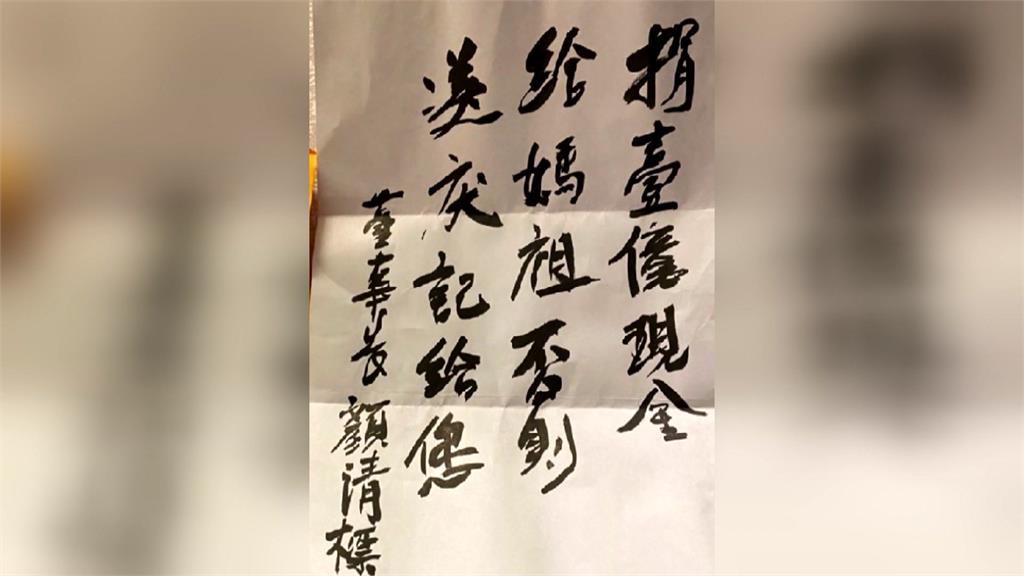 捐壹億現金
給媽祖否則
災厌記給您
董事長顏清標